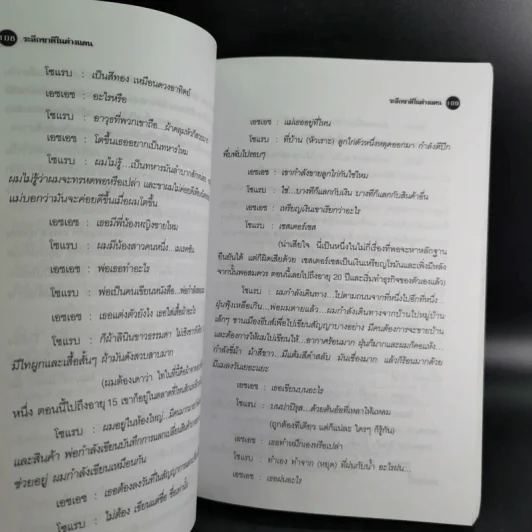 108 ระลึกชาติในต่างแดน
โซแรบ : เป็นสีทอง เหมือนดวงอาทิตย์
เอชเอช : อะไรหรือ
โซแรบ : อาวุธที่พวกเขาถือ...ผ้าคลุมหัวก็สวยมาก
เอชเอช : โตขึ้นเธออยากเป็นทหารไหม
โซแรบ : ผมไม่รู้...เป็นทหารมันลำบาก
ผมไม่รู้ว่าผมจะทรหดพอหรือเปล่า และขาผมไม่ค่อยดี
แม่บอกว่ามันจะค่อยดีขึ้นเมื่อผมโตขึ้น
เอชเอช : เธอมีพี่น้องหญิงชายไหม
โซแรบ : ผมมีน้องสาวคนหนึ่ง...
เอชเอช : พ่อเธอทำอะไร
โซแรบ : พ่อเป็นคนเขียนหนังสือ...พ่อกำลังสอนผม
เอชเอช : เธอแต่งตัวยังไง เธอใส่เสื้อผ้าอะไร
โซแรบ : ก็ผ้าลินินขาวธรรมดา
มีไทผูกและเสื้อสั้นๆ ผ้ามันค้งสวบสาบมาก
(ผมต้องเดาว่า
หนึ่ง ตอนนี้ไปถึงอายุ 15 เขาก็อยู่ในตลาด
โซแรบ : ผมอยู่ในห้องใหญ่...มีคนมากมาย
และสินค้า พ่อกำลังเขียนบันทึกการแลกเปลี่ยนสินค้า
ช่วยอยู่ ผมกำลังเขียนเหมือนกัน
เอชเอช : เธอต้องลงวันที่ในสัญญา
โซแรบ : ไม่ต้อง เขียนแต่ชื่อ ชื่อเท่านั้น
ระลึกชาติในต่างแดน 109
เอชเอช : แม่เธออยู่ที่ไหน
โซแรบ : ที่บ้าน (หัวเราะ) ลูกไก่ตัวหนึ่งหลุดออกมา กำลังตีปีก
พึ่บพั่บไปรอบๆ
เอชเอช : เขากำลังขายลูกไก่กันใช่ไหม
โซแรบ : ใช่...บางทีก็แลกกับเงิน บางทีก็แลกกับสินค้าอื่น
เอชเอช : เหรียญเงินเขาเรียกว่าอะไร
โซแรบ : เซสเตอร์เซส
(น่าเสียใจ นี่เป็นหนึ่งในไม่กี่เรื่องที่พอจะหาหลักฐาน
ยืนยันได้ แต่ก็ผิดเสียด้วย เซสเตอร์เซสเป็นเงินเหรียญโรมันและเพิ่งมีหลัง
จากนั้นพอสมควร ตอนนี้เลยไปถึงอายุ 20 ปีและเงินทำธุรกิจของตัวเองแล้ว)
โซแรบ : ผมกำลังเดินทาง...ไปตามถนนจากที่หนึ่งไปอีกที่หนึ่ง...
ฝุ่นฟุ้งเหลือเกิน...พ่อผมตายแล้ว...ผมกำลังเดินทางจากบ้านไปหมู่บ้าน
เล็กๆ ขานเมืองยิบส์เพื่อไปเขียนสัญญาบางอย่าง มีคนต้องการจะขายบ้าน
และต้องการให้ผมไปเขียนให้...อากาศร้อนมาก ฝุ่นก็มากและผมก็คอแห้ง...
กำลังขี่ม้า ม้าสีขาว...มีแต้มสีดำสลับ มันเชื่องมาก แล้วก็ร้อนมากด้วย
มีแมลงวันเยอะแยะ
เอชเอช : เธอเขียนบนอะไร
โซแรบ : บนปาปิรุส...ด้วยต้นอ้อที่เหลาให้แหลม
(ถูกต้องทีเดียว แต่ก็แน่ละ ใครๆ ก็รู้กัน)
เอชเอช : เธอทำหมึกเองหรือเปล่า
โซแรบ : ทำเอง ทำจาก (หยุด) ที่ฝนกับน้ำ อะไรฝน...
เอชเอช : เธอฝนอะไร